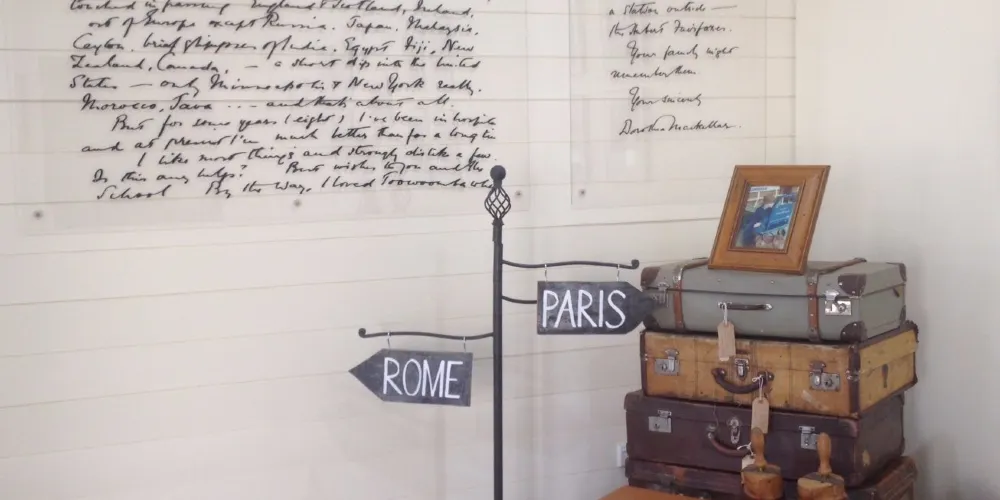 touched in passing England & Scotland, Ireland,
out of Europe except Russia. Japan, Malaysia,
Ceylon, brief glimpses of India, Egypt Fiji, New
Zealand, Canada, — a short dip into the United
States — only Minneapolis & New York really.
Morocco, Java ... — and that's about all.
But for some years (eight) I've been in hospital
and at present I'm much better than for a long time
I like most things and strongly dislike a few.
Is this any help? Best wishes to you and the
School By the Way, I loved Toowoomba when
a station outside —
the
Your family might
remember them
Yours sincerely
Dorothea Mackellar.
PARIS
ROME